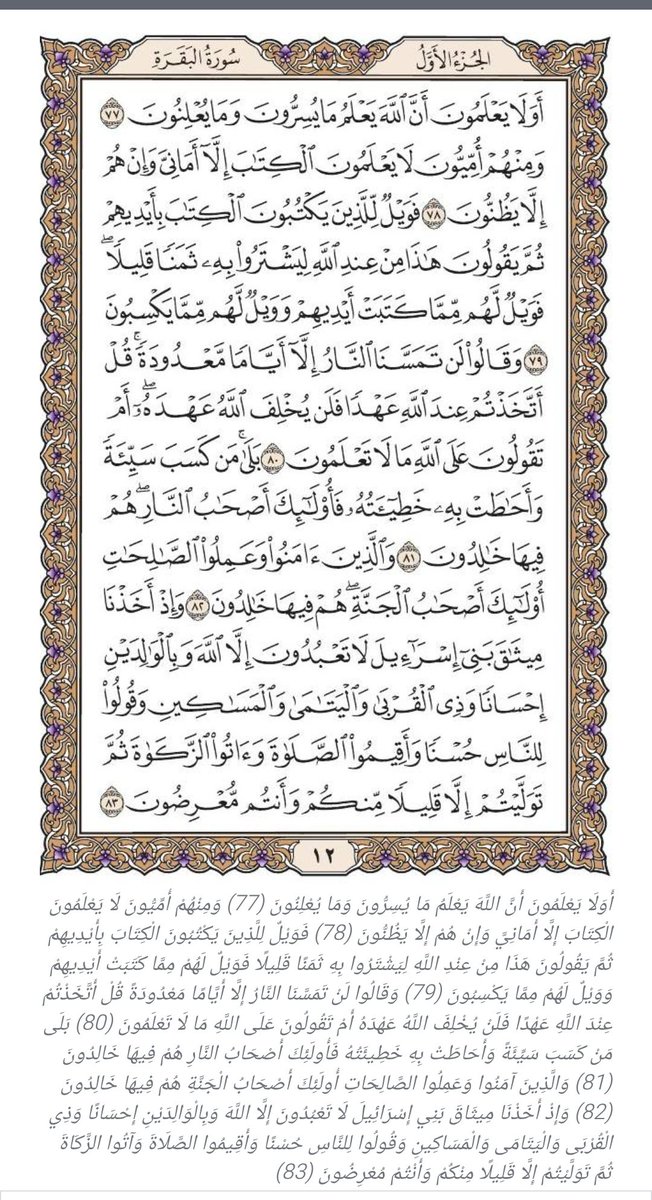 الجُزْءُ الأَوَّلُ
سُورَةُ البَقَرَةِ
أَوَلَا يَعۡلَمُونَ أَنَّ ٱللَّهَ يَعۡلَمُ مَا يُسِرُّونَ وَمَا يُعۡلِنُونَ ٧٧
وَمِنۡهُمۡ أُمِّيُّونَ لَا يَعۡلَمُونَ ٱلۡكِتَٰبَ إِلَّآ أَمَانِيَّ وَإِنۡ هُمۡ
إِلَّا يَظُنُّونَ ٧٨ فَوَيۡلٞ لِّلَّذِينَ يَكۡتُبُونَ ٱلۡكِتَٰبَ بِأَيۡدِيهِمۡ
ثُمَّ يَقُولُونَ هَٰذَا مِنۡ عِندِ ٱللَّهِ لِيَشۡتَرُواْ بِهِۦ ثَمَنٗا قَلِيلٗاۖ
فَوَيۡلٞ لَّهُم مِّمَّا كَتَبَتۡ أَيۡدِيهِمۡ وَوَيۡلٞ لَّهُم مِّمَّا يَكۡسِبُونَ
٧٩ وَقَالُواْ لَن تَمَسَّنَا ٱلنَّارُ إِلَّآ أَيَّامٗا مَّعۡدُودَةٗۚ قُلۡ
أَتَّخَذۡتُمۡ عِندَ ٱللَّهِ عَهۡدٗا فَلَن يُخۡلِفَ ٱللَّهُ عَهۡدَهُۥٓۖ أَمۡ
تَقُولُونَ عَلَى ٱللَّهِ مَا لَا تَعۡلَمُونَ ٨٠ بَلَىٰۚ مَن كَسَبَ سَيِّئَةٗ
وَأَحَٰطَتۡ بِهِۦ خَطِيٓـَٔتُهُۥ فَأُوْلَٰٓئِكَ أَصۡحَٰبُ ٱلنَّارِۖ هُمۡ
فِيهَا خَٰلِدُونَ ٨١ وَٱلَّذِينَ ءَامَنُواْ وَعَمِلُواْ ٱلصَّٰلِحَٰتِ
أُوْلَٰٓئِكَ أَصۡحَٰبُ ٱلۡجَنَّةِۖ هُمۡ فِيهَا خَٰلِدُونَ ٨٢ وَإِذۡ أَخَذۡنَا
مِيثَٰقَ بَنِيٓ إِسۡرَٰٓءِيلَ لَا تَعۡبُدُونَ إِلَّا ٱللَّهَ وَبِٱلۡوَٰلِدَيۡنِ
إِحۡسَانٗا وَذِي ٱلۡقُرۡبَىٰ وَٱلۡيَتَٰمَىٰ وَٱلۡمَسَٰكِينِ وَقُولُواْ
لِلنَّاسِ حُسۡنٗا وَأَقِيمُواْ ٱلصَّلَوٰةَ وَءَاتُواْ ٱلزَّكَوٰةَ ثُمَّ
تَوَلَّيۡتُمۡ إِلَّا قَلِيلٗا مِّنكُمۡ وَأَنتُم مُّعۡرِضُونَ ٨٣
١٢
أَوَلَا يَعْلَمُونَ أَنَّ اللَّهَ يَعْلَمُ مَا يُسِرُّونَ وَمَا يُعْلِنُونَ (77) وَمِنْهُمْ أُمِّيُّونَ لَا يَعْلَمُونَ
الْكِتَابَ إِلَّا أَمَانِيَّ وَإِنْ هُمْ إِلَّا يَظُنُّونَ (78) فَوَيْلٌ لِلَّذِينَ يَكْتُبُونَ الْكِتَابَ بِأَيْدِيهِمْ
ثُمَّ يَقُولُونَ هَذَا مِنْ عِنْدِ اللَّهِ لِيَشْتَرُوا بِهِ ثَمَنًا قَلِيلًا فَوَيْلٌ لَهُمْ مِمَّا كَتَبَتْ أَيْدِيهِمْ
وَوَيْلٌ لَهُمْ مِمَّا يَكْسِبُونَ (79) وَقَالُوا لَنْ تَمَسَّنَا النَّارُ إِلَّا أَيَّامًا مَعْدُودَةً قُلْ أَتَّخَذْتُمْ
عِنْدَ اللَّهِ عَهْدًا فَلَنْ يُخْلِفَ اللَّهُ عَهْدَهُ أَمْ تَقُولُونَ عَلَى اللَّهِ مَا لَا تَعْلَمُونَ (80) بَلَى
مَنْ كَسَبَ سَيِّئَةً وَأَحَاطَتْ بِهِ خَطِيئَتُهُ فَأُولَئِكَ أَصْحَابُ النَّارِ هُمْ فِيهَا خَالِدُونَ
(81) وَالَّذِينَ آمَنُوا وَعَمِلُوا الصَّالِحَاتِ أُولَئِكَ أَصْحَابُ الْجَنَّةِ هُمْ فِيهَا خَالِدُونَ
(82) وَإِذْ أَخَذْنَا مِيثَاقَ بَنِي إِسْرَائِيلَ لَا تَعْبُدُونَ إِلَّا اللَّهَ وَبِالْوَالِدَيْنِ إِحْسَانًا وَذِي
الْقُرْبَى وَالْيَتَامَى وَالْمَسَاكِينِ وَقُولُوا لِلنَّاسِ حُسْنًا وَأَقِيمُوا الصَّلَاةَ وَآتُوا الزَّكَاةَ
ثُمَّ تَوَلَّيْتُمْ إِلَّا قَلِيلًا مِنْكُمْ وَأَنْتُمْ مُعْرِضُونَ (83)